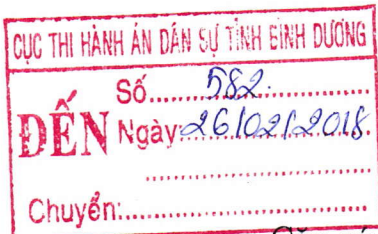 CỤC THI HÀNH ÁN DÂN SỰ TỈNH BÌNH DƯƠNG
Số......582.
ĐẾN Ngày:26/02/2018
Chuyển: